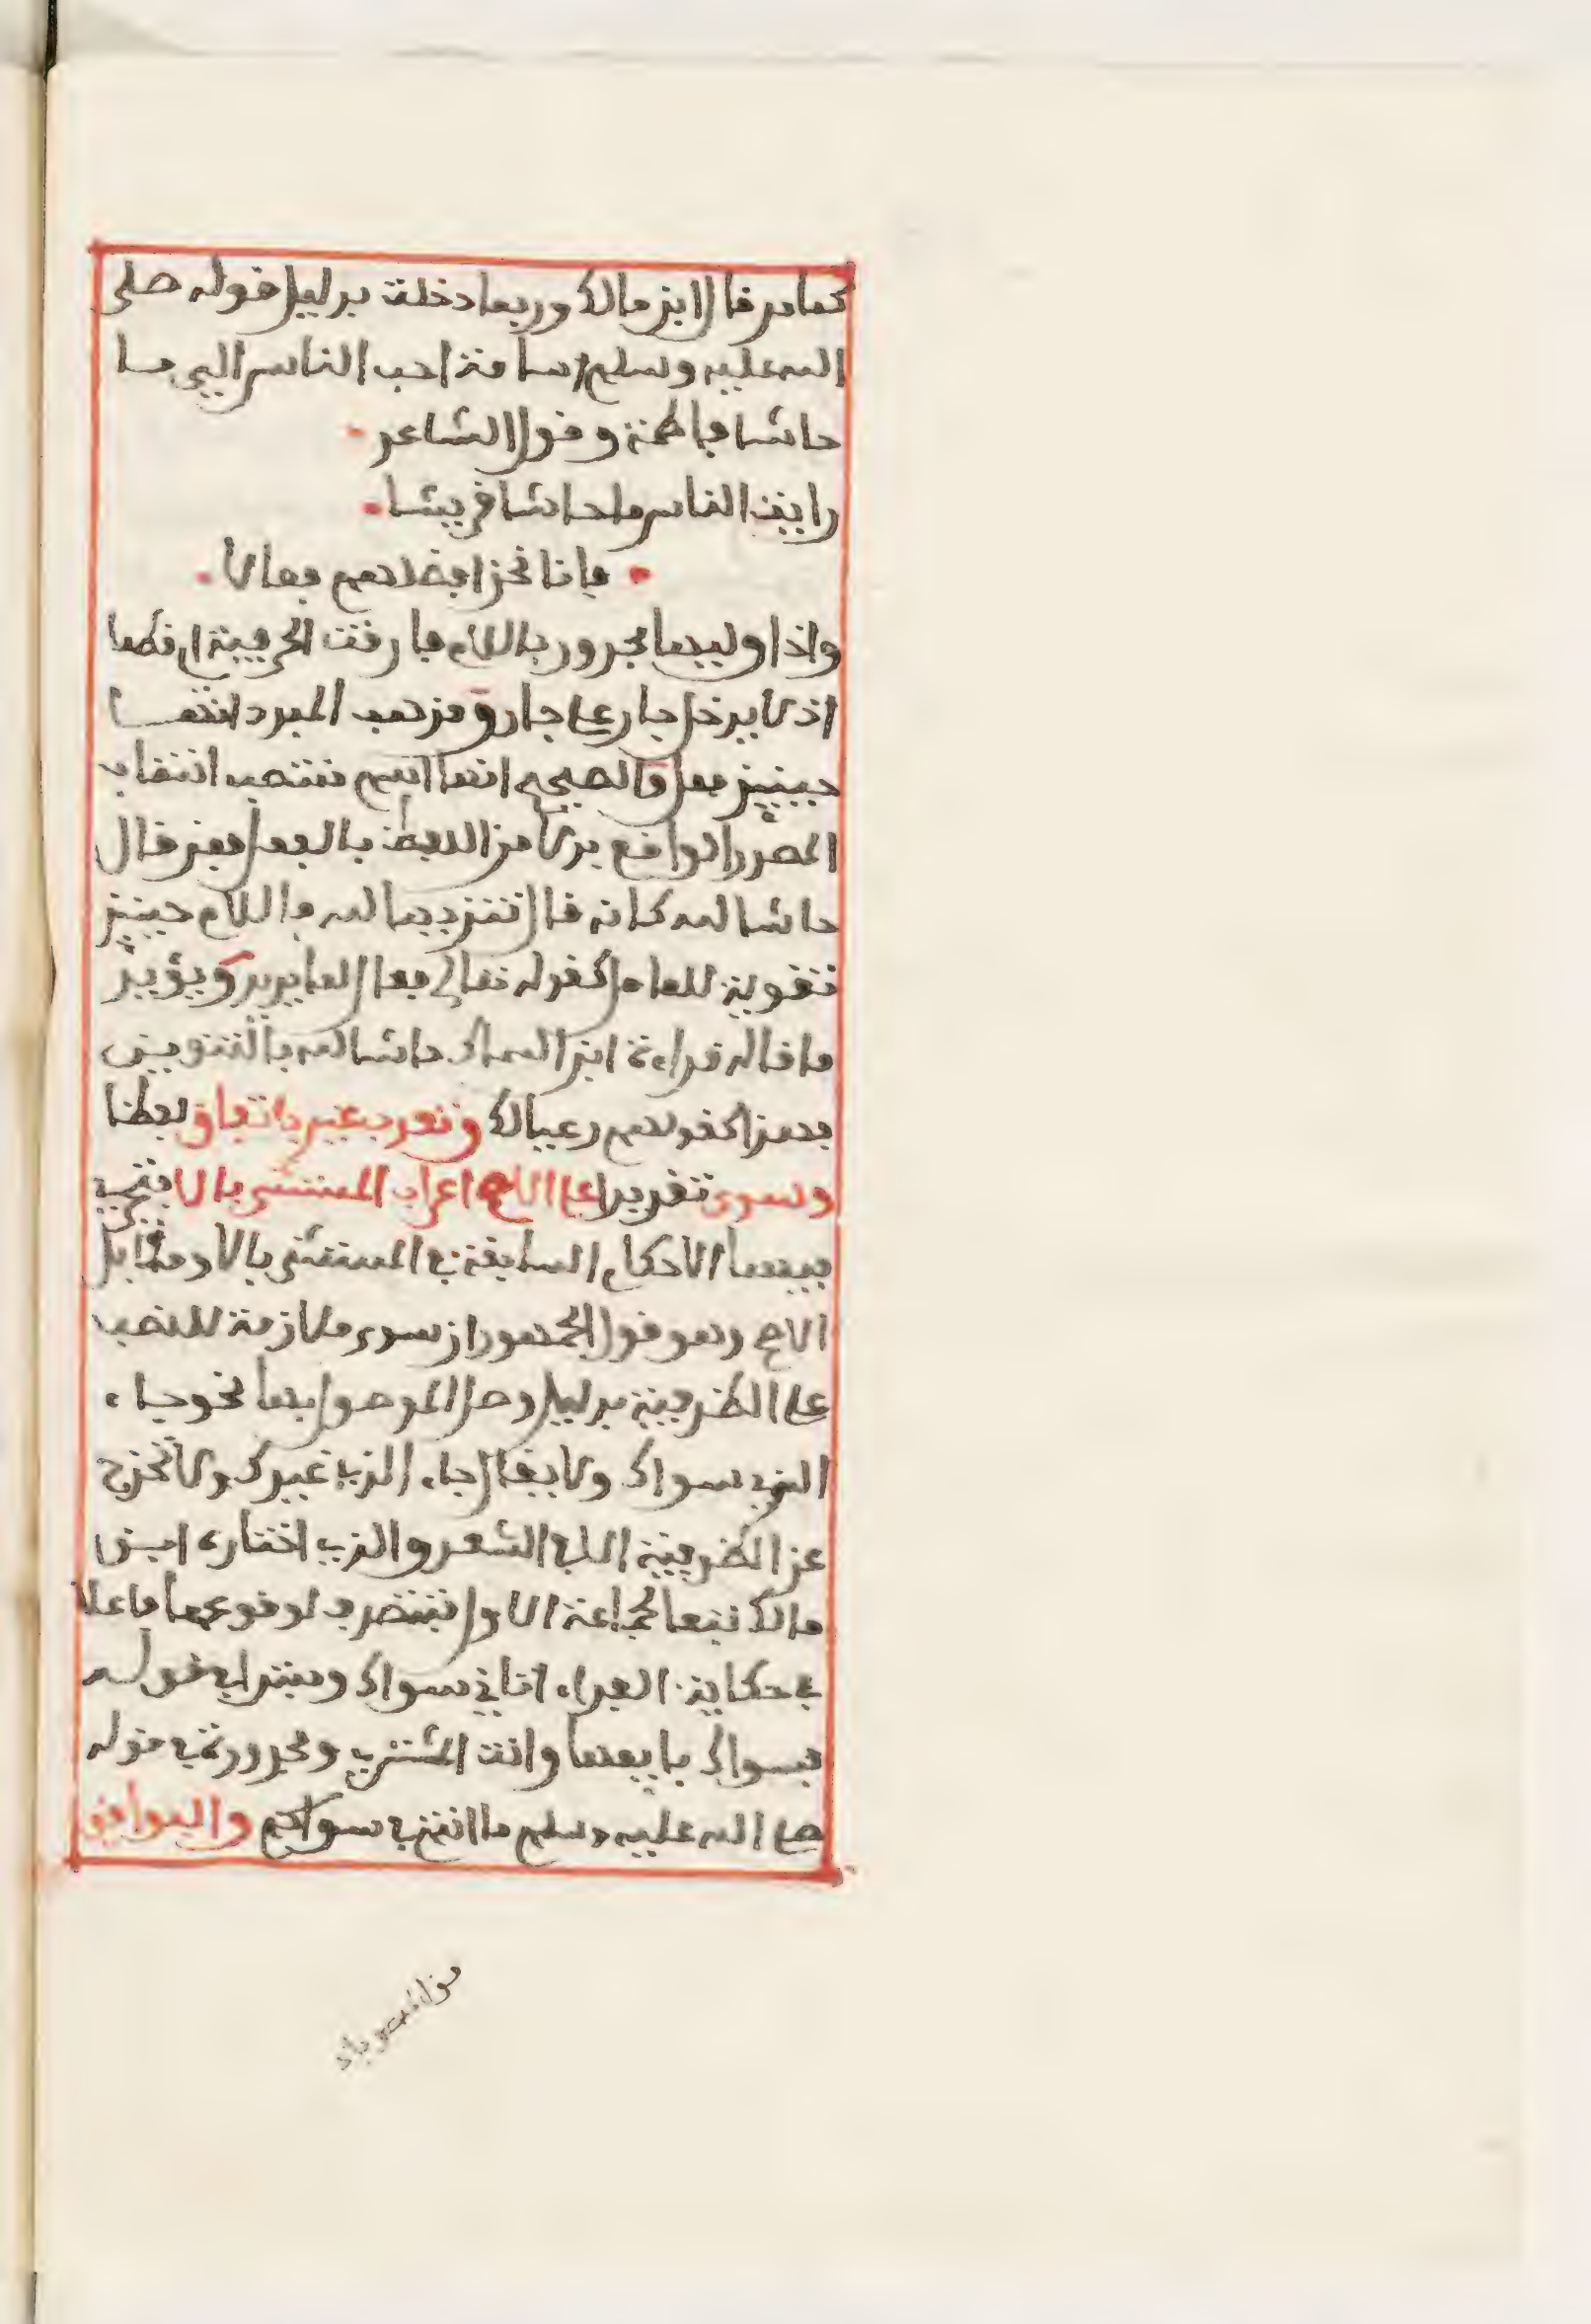 كما مر قال ابن مالك وربما دخلت بدليل قوله صلى
الله عليه وسلم اسامة احب الناس الي ما
حاشا فاطمة وقول الشاعر
رايت الناس ما حاشا قريشا
فانا نحن افضلهم فعالا
واذا وليها مجرور باللام فارقت الحرفية قطعا
اذ لا يدخل جار على جار ومذهب المبرد انها
حينئذ فعل والصحيح انها اسم منتصب انتصاب
المصدر الواقع بدلا من اللفظ بالفعل فمن قال
حاشا لله كانه قال تنزيها لله واللام حينئذ
تقوية للعامل كقوله تعالى فعال لما يريد ويؤيد
ما قاله قراءة ابن السماك حاشا لله بالتنوين
فهذا كقولهم رعيا لك وتعرب غير باتفاق لفظا
وسوى تقديرا على الاصح اعراب المستثنى بالا فتجي
فيهما الاحكام السابقة في المستثنى بالا ومقابل
الاصح وهو قول الجمهور ان سوى ملازمة للنصب
على الظرفية بدليل وصل الموصول بها نحو جاء
الذي سواك ولا يقال جاء الذي غيرك ولا تخرج
عن الظرفية الا في الشعر والذي اختاره ابن
مالك تبعا لجماعة الاول فتتصرف لوقوعها فاعلا
في حكاية الفراء اتاني سواك ومبتدا في قوله
فسواك بايعها وانت المشتري ومجرورة في قوله
صلى الله عليه وسلم ما انتم في سواكم والبواقي